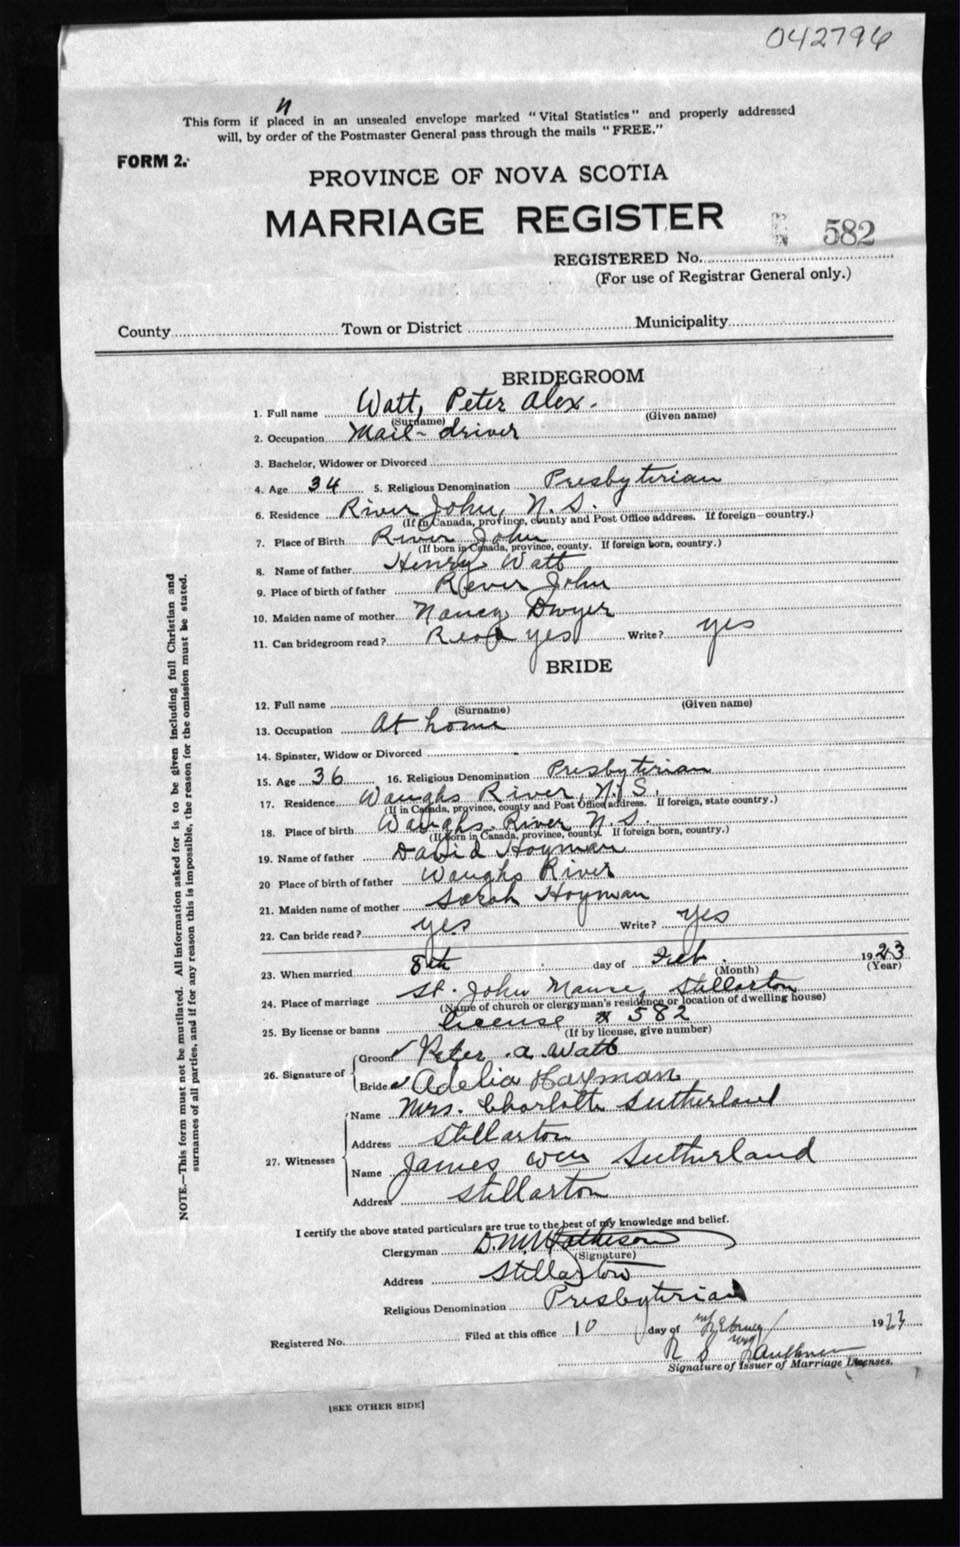 042796
This form if placed in an unsealed envelope marked "Vital Statistics" and properly addressed
will, by order of the Postmaster General pass through the mails "FREE."
FORM 2.
PROVINCE OF NOVA SCOTIA
MARRIAGE REGISTER
582
REGISTERED No.
(For use of Registrar General only.)
County Town or District Municipality
BRIDEGROOM
1. Full name Watt, Peter Alex.
(Surname) (Given name)
2. Occupation Mail-driver
3. Bachelor, Widower or Divorced
4. Age 34 5. Religious Denomination Presbyterian
6. Residence River John, N.S.
(If in Canada, province, county and Post Office address. If foreign—country.)
7. Place of Birth River John
(If born in Canada, province, county. If foreign born, country.)
8. Name of father Henry Watt
9. Place of birth of father River John
10. Maiden name of mother Nancy Dwyer
11. Can bridegroom read? Read yes Write? yes
BRIDE
12. Full name
(Surname) (Given name)
13. Occupation At home
14. Spinster, Widow or Divorced
15. Age 36 16. Religious Denomination Presbyterian
17. Residence Waughs River, N.S.
(If in Canada, province, county and Post Office address. If foreign, state country.)
18. Place of birth Waughs River N.S.
(If born in Canada, province, county. If foreign born, country.)
19. Name of father David Hoyman
20 Place of birth of father Waughs River
21. Maiden name of mother Sarah Hoyman
22. Can bride read? yes Write? yes
23. When married 8th day of Feb. 1923
(Month) (Year)
24. Place of marriage St. John Manse, Stellarton
(Name of church or clergyman's residence or location of dwelling house)
25. By license or banns License # 582
(If by license, give number)
26. Signature of
Groom Peter. a. Watt
Bride Adelia Hayman
27. Witnesses
Name Mrs. Charlotte Sutherland
Address Stellarton
Name James Wm Sutherland
Address Stellarton
I certify the above stated particulars are true to the best of my knowledge and belief.
Clergyman D. M. Matheson
(Signature)
Address Stellarton
Religious Denomination Presbyterian
Registered No. Filed at this office 10 day of February 1923
R S Faulkner
Signature of Issuer of Marriage Licenses.
[SEE OTHER SIDE]
NOTE.—This form must not be mutilated. All information asked for is to be given including full Christian and
surnames of all parties, and if for any reason this is impossible, the reason for the omission must be stated.